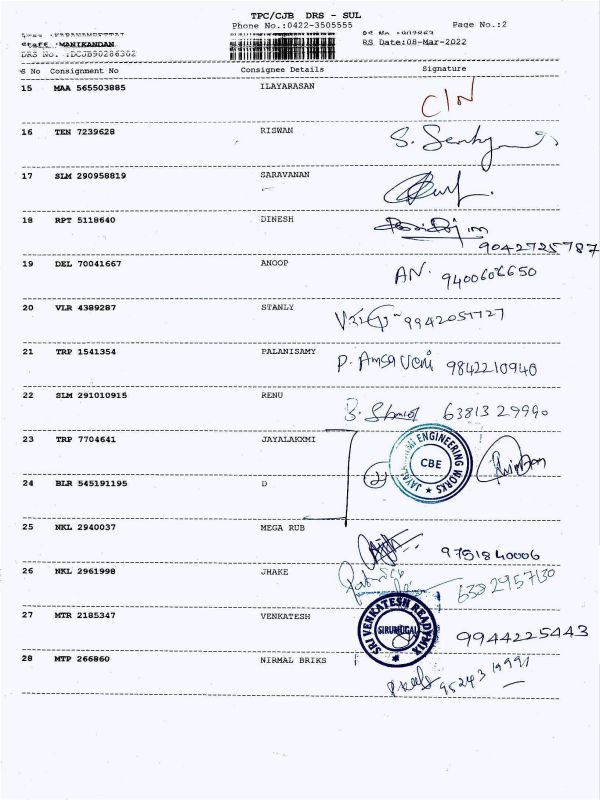 TPC/CJB DRS - SUL
Phone No.:0422-3505555 Page No.:2
Staff :MANIKANDAN RS Date:08-Mar-2022
DRS No. :DCJB90286302
S No Consignment No Consignee Details Signature
15 MAA 565503885 ILAYARASAN C/N
16 TEN 7239628 RISWAN
17 SLM 290958819 SARAVANAN
18 RPT 5118640 DINESH
9042725787
19 DEL 70041667 ANOOP AN. 9400606650
20 VLR 4389287 STANLY 9942057727
21 TRP 1541354 PALANISAMY P. Amsaveni 9842210940
22 SLM 291010915 RENU 63813 29990
23 TRP 7704641 JAYALAKXMI
JAYALAKSHMI ENGINEERING WORKS CBE
24 BLR 545191195 D
25 NKL 2940037 MEGA RUB 9751840006
26 NKL 2961998 JHAKE 6382957130
27 MTR 2185347 VENKATESH 9944225443
SRI VENKATESH READYMIX SIRUMUGAI
28 MTP 266860 NIRMAL BRIKS 95243 19991